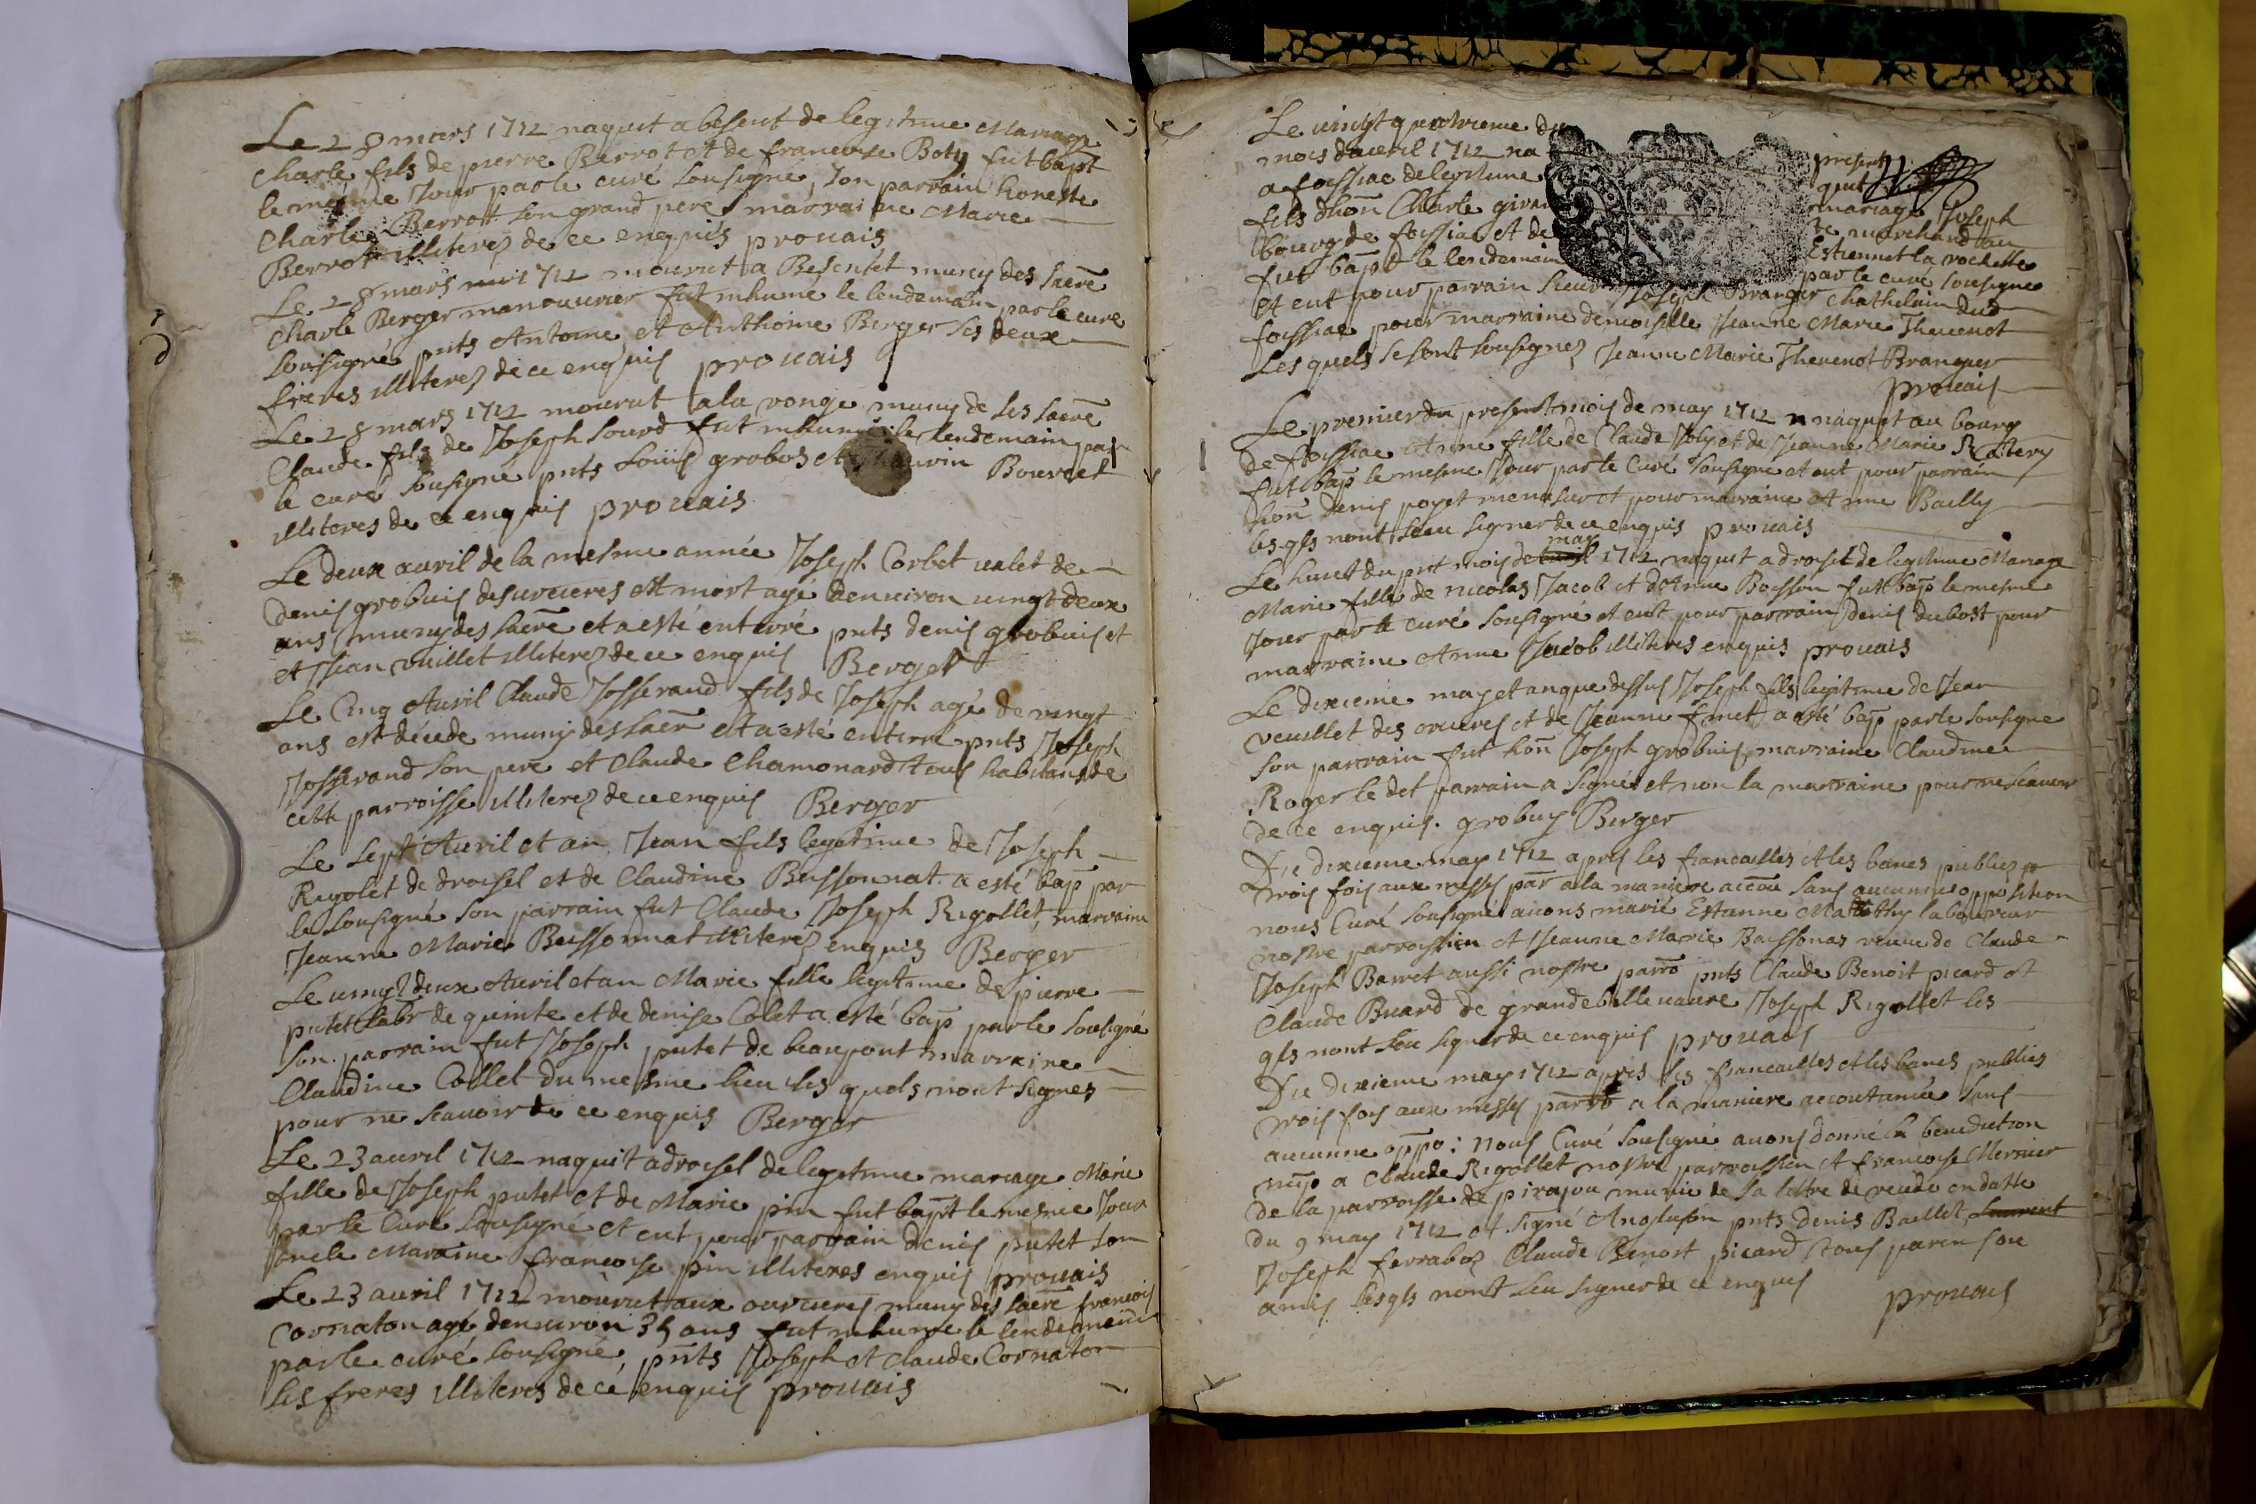 Le 28 mars 1712 naquit a besent de legitime Mariage
Charle fils de pierre Berrot et de francoise Boty fut bapt
le mesme Jour par le curé sousigné, son parrain honeste
Charle Berrot son grand pere marraine Marie
Berrot illiterez de ce enquis prouais
Le 28 mars 1712 mourut a Besentet muny des sacre
Charle Berger manouurier fut inhumé le lendemain par le curé
sousigné pnts Antoine et Anthoine Berger ses deux
freres illiterez de ce enquis prouais
Le 28 mars 1712 mourut a la vonge muny de ses sacre
Claude fils de Joseph sourd fut inhumé le lendemain par
le curé sousigné pnts Louis grobos et Bourcet
illiteres de ce enquis prouais
Le deux auril de la mesme année Joseph Corbet ualet de
denis grobuis des urcieres est mort agé denuiron uingt deux
ans muny des sacre et a esté enterré pnts denis grobuis et
et Jean vuillet illiterez de ce enquis Berger
Le Cinq Auril Claude Josserand fils de Joseph agé de vingt
ans est décéde muny des sacr et a esté enterre pnts Joseph
Josserand son pere et Claude Chamonard tous habitans de
cette parroisse illiterez de ce enquis Berger
Le sept Auril et an Jean fils legitime de Joseph
Rigolet de droisel et de Claudine Buissonnat a esté bap par
le sousigné son parrain fut Claude Joseph Rigollet, marraine
Jeanne Marie Buissonnat illiterez enquis Berger
Le uingt deux Auril et an Marie fille legitime de pierre
putet labr de quinte et de denise Colet a esté bap par le sousigné
son parrain fut Joseph putet de beaupont marraine
Claudine Collet du mesme lieu les quels nont signes
pour ne scauoir de ce enquis Berger
Le 23 auril 1712 naquit a droisel de legitime mariage Marie
fille de Joseph putet et de Marie pin fut bapt le mesme Jour
par le Curé sousigné et eut pour parrain denis putet son
oncle Maraine francoise pin illiteres enquis prouais
Le 23 auril 1712 mourut aux ourcieres muny des sacre francois
Cornaton agé denuiron 35 ans fut inhumé le lendemain
par le curé sousigné, pnts Joseph et Claude Cornaton
ses freres illiteres de cé enquis prouais
Le uingt quatrieme du present
mois dauril 1712 na quit
a foissiac de legitime mariage Joseph
fils dhon Charle girar marchand au
bourg de foissiac et de Estiennet la rochette
fut bapt le lendemain par le curé sousigné
et eut pour parrain sieur Joseph Branger Chathelain dud
foissiac pour marraine demoiselle Jeanne Marie Theuenot
Les quels se sont sousignez Jeanne Marie Theuenot Branguer
prouais
Le premier du present mois de may 1712 naquit au bourg
de foissiac Anne fille de Claude Joly et de Jeanne Marie
fut bap le mesme Jour par le Curé sousigné et eut pour parrain
hon denis poget menusier et pour marraine Anne Bailly
les qls nont sceu signer de ce enquis prouais
Le huict du pnt mois de may 1712 naquit a droisel de legitime Mariage
Marie fille de nicolas Jacob et dAnne Boisson fut bap le mesme
Jour par le curé sousigné et eut pour parrain denis dubost pour
marraine Anne Jacob illiteres enquis prouais
Le dixieme may et an que dessus Joseph fils legitime de Jean
veuillet des orcieres et de Jeanne a esté bap par le sousigne
son parrain fut hon Joseph grobuis, marraine Claudine
Roger le det parrain a signé et non la marraine pour ne scauoir
de ce enquis. grobuis Berger
Du dixieme may 1712 apres les francailles et les bancs publiez pr
trois fois aux messes par a la maniere accou sans aucunne opposition
nous Curé sousigné auons marié Estienne Mathy laboureur
nostre parroissien et Jeanne Marie Buissonas veuue de Claude
Joseph Barret aussi nostre parro pnts Claude Benoit picard et
Claude Buard de grande Joseph Rigollet les
qls nont sceu signer de ce enquis prouais
Du dixieme may 1712 apres les francailles et les bancs publies
trois fois aux messes parro a la maniere accoutumée sans
aucunne oppo: nous Curé sousigné auons donné la benediction
nup a Claude Rigollet nostre parroissien et francoise Mernier
de la parroisse de pirajou munie de sa lettre de rendu en datte
du 9 may 1712 et signé pnts denis Baillet
Joseph ferrabo Claude Benoit picard tous paren sou
amis les qls nont sceu signer de ce enquis
prouais